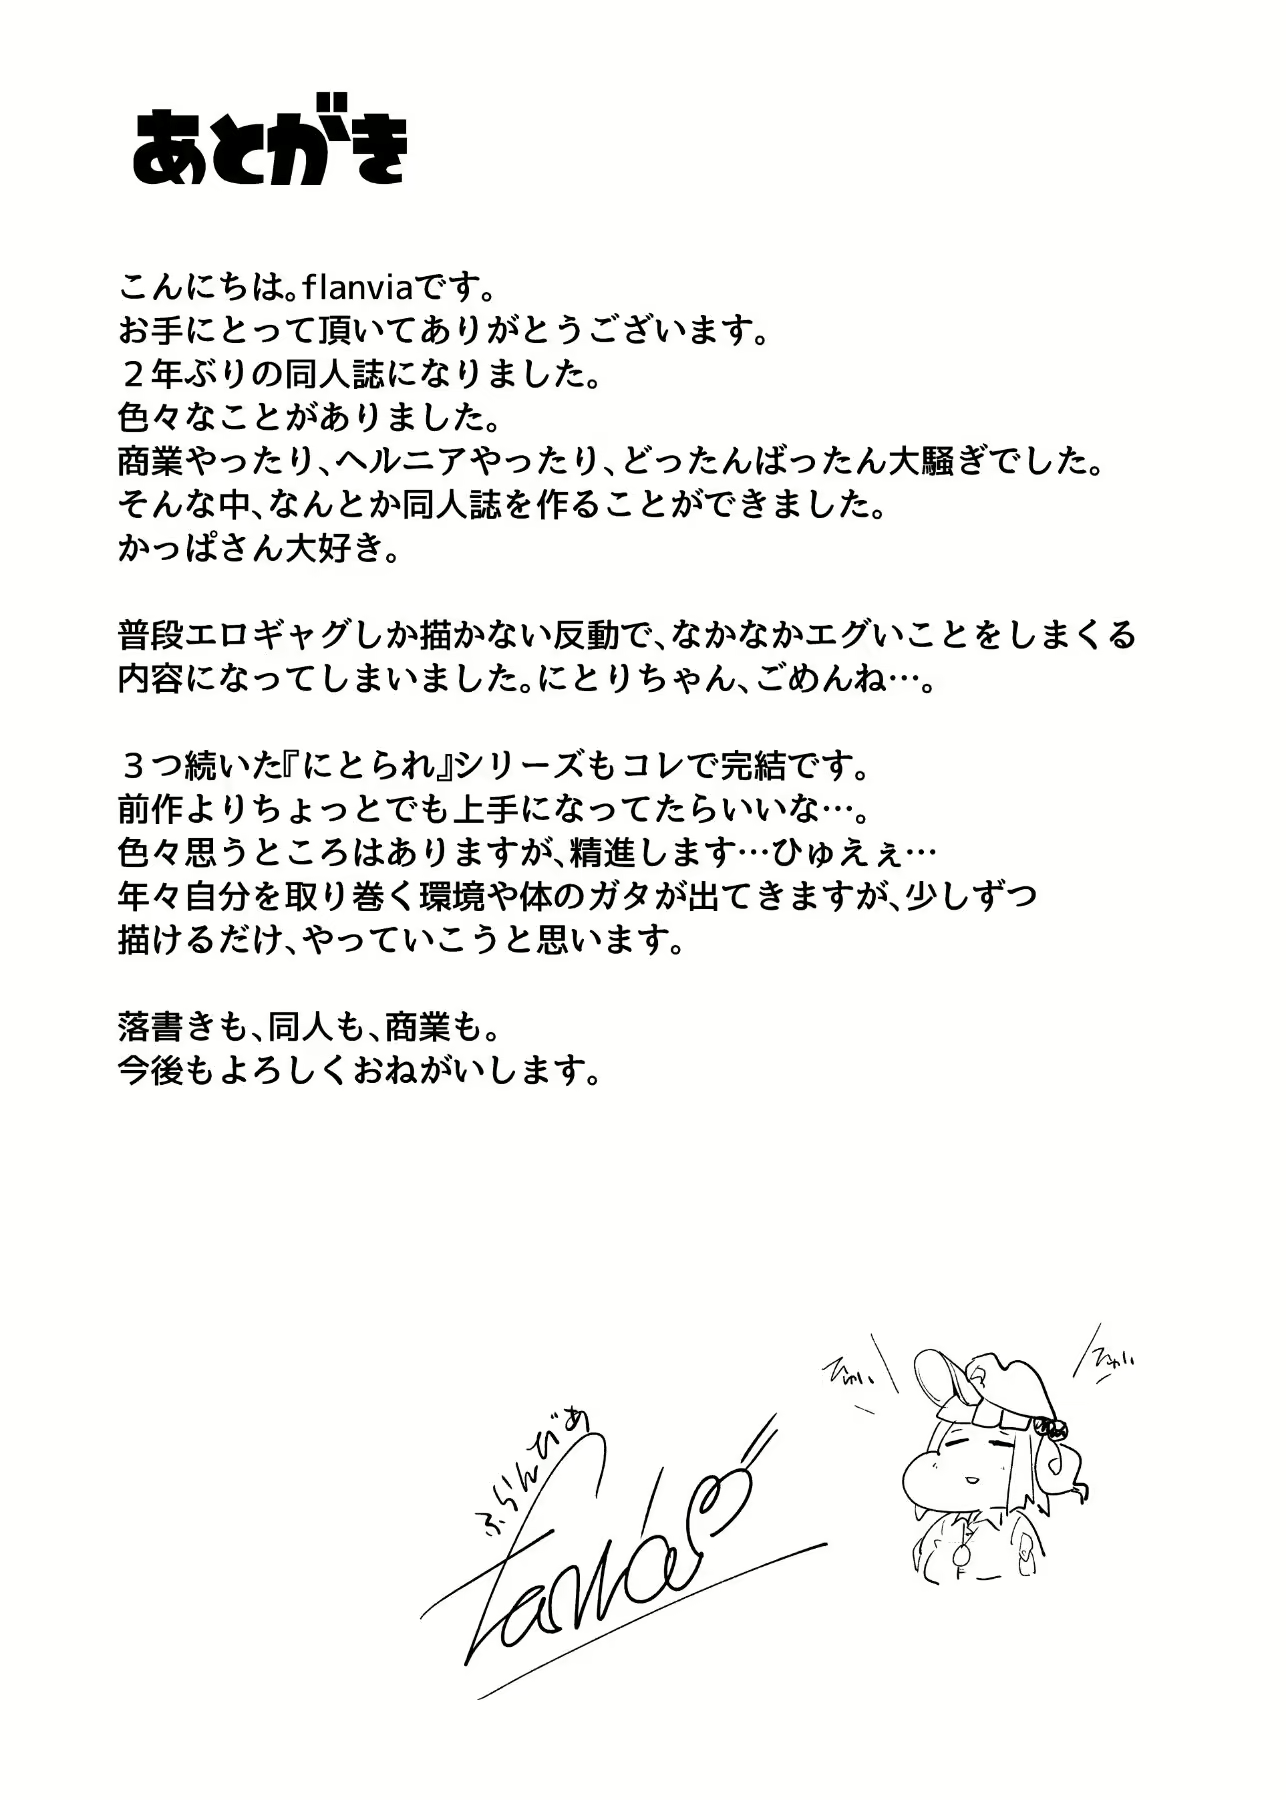 あとがき
こんにちは。flanviaです。
お手にとって頂いてありがとうございます。
２年ぶりの同人誌になりました。
色々なことがありました。
商業やったり、ヘルニアやったり、どったんばったん大騒ぎでした。
そんな中、なんとか同人誌を作ることができました。
かっぱさん大好き。
普段エロギャグしか描かない反動で、なかなかエグいことをしまくる
内容になってしまいました。にとりちゃん、ごめんね…。
３つ続いた『にとられ』シリーズもコレで完結です。
前作よりちょっとでも上手になってたらいいな…。
色々思うところはありますが、精進します…ひゅえぇ…
年々自分を取り巻く環境や体のガタが出てきますが、少しずつ
描けるだけ、やっていこうと思います。
落書きも、同人も、商業も。
今後もよろしくおねがいします。
ひゅい
ひゅい
ふらんびあ